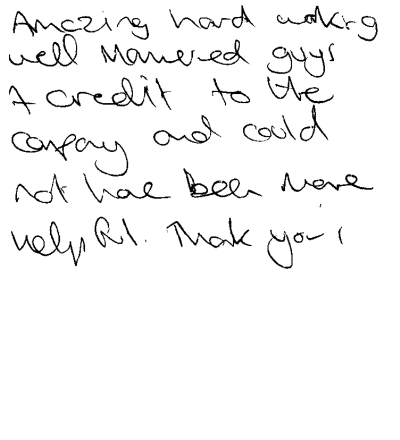 Amazing hard working
well mannered guys
A credit to the
company and could
not have been more
helpful. Thank you!